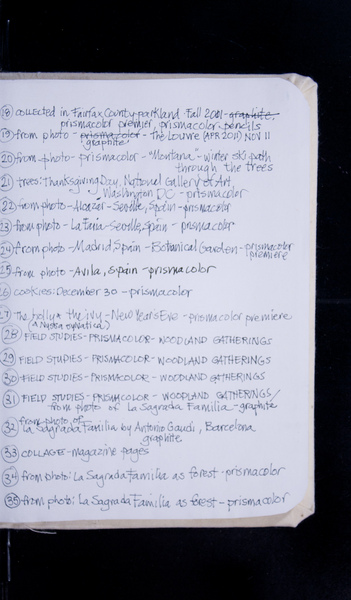 18 collected in Fairfax County parkland Fall 2011 - graphite,
prismacolor premier, prismacolor pencils
19 from photo - prismacolor - The Louvre (APR 2011) NOV 11
graphite
20 from photo - prismacolor - "Montana" - winter ski path
through the trees
21 trees: Thanksgiving Day, National Gallery of Art,
Washington DC - prismacolor
22 from photo - Alcazar - Seville, Spain - prismacolor
23 from photo - La Faria - Seville, Spain - prismacolor
24 from photo - Madrid, Spain - Botanical Garden - prismacolor
premiere
25 from photo - Avila, Spain - prismacolor
26 cookies: December 30 - prismacolor
27 The holly & the ivy - New Year's Eve - prismacolor premiere
28 FIELD STUDIES - PRISMACOLOR - WOODLAND GATHERINGS
29 FIELD STUDIES - PRISMACOLOR - WOODLAND GATHERINGS
30 FIELD STUDIES - PRISMACOLOR - WOODLAND GATHERINGS
31 FIELD STUDIES - PRISMACOLOR - WOODLAND GATHERINGS/
from photo of La Sagrada Familia - graphite
from photo of
32 La Sagrada Familia by Antonio Gaudi, Barcelona
graphite
33 COLLAGE - magazine pages
34 from photo: La Sagrada Familia as forest - prismacolor
35 from photo: La Sagrada Familia as forest - prismacolor